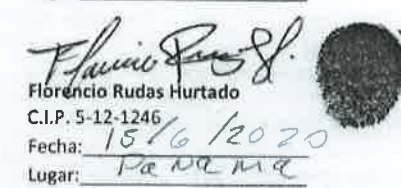 Florencio Rudas Hurtado
C.I.P. 5-12-1246
Fecha: 15/6/2020
Lugar: Panama